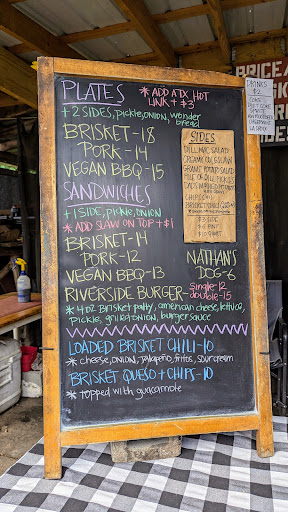 PLATES
* ADD A TX HOT
LINK + $3
+ 2 SIDES, PICKLE, ONION, wonder
bread
BRISKET - 18
PORK - 14
VEGAN BBQ - 15
SANDWICHES
+ 1 SIDE, PICKLE, ONION
* ADD SLAW ON TOP + $1
BRISKET - 14
PORK - 12
VEGAN BBQ - 13
RIVERSIDE BURGER - Single-12
double-15
* 4 oz Brisket patty, american cheese, lettuce,
Pickle, grilled onion, burger sauce
LOADED BRISKET CHILI - 10
* cheese, onion, jalapeño, fritos, sour cream
BRISKET QUESO + CHIPS - 10
* topped with guacamole
SIDES
DILL MAC SALAD
ORGANIC COLESLAW
POTATO SALAD
CHIPS
$3 SIDE
NATHAN'S
DOG - 6
DRINKS
$2
COKE
DIET COKE
SPRITE